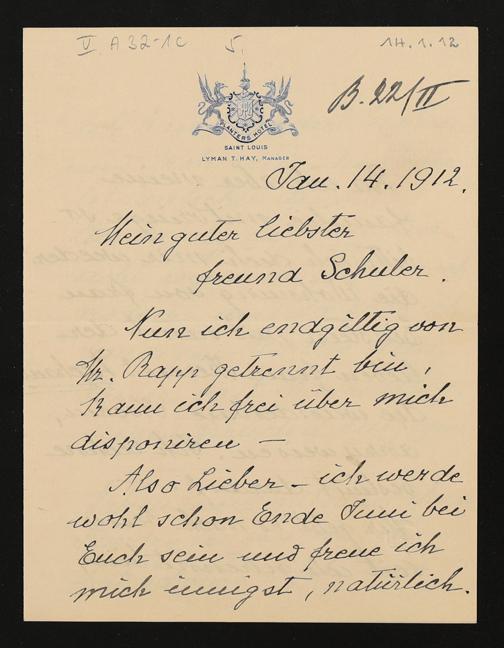 V A 32-1c 5. 14.1.12
B.22/II
PLANTERS HOTEL
SAINT LOUIS
LYMAN T. HAY, MANAGER
Jan. 14. 1912.
Mein guter liebster
freund Schuler.
Nun ich endgiltig von
Mr. Rapp getrennt bin,
kann ich frei über mich
disponiren —
Also Lieber – ich werde
wohl schon Ende Juni bei
Euch sein und freue ich
mich innigst, natürlich.